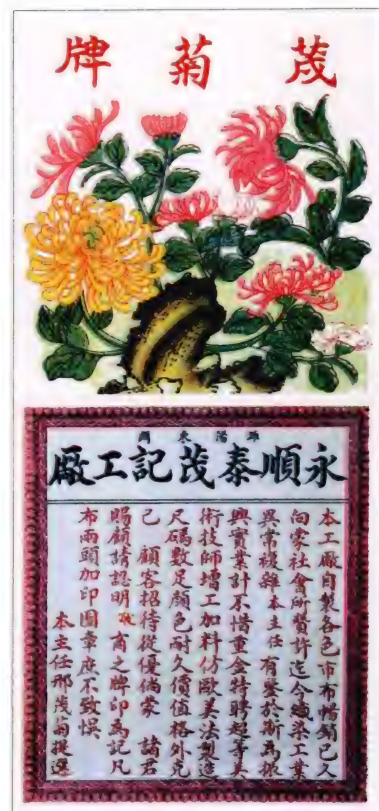 茂菊牌
濰陽東關
永順泰茂記工廠
本工廠自製各色市布已久
向蒙社會所贊許迄今織染工業
異常複雜本主任有鑒於斯為振
興實業計不惜重金特聘超等美
術技師增工加料仿歐美法製造
尺碼數足顏色耐久價值格外克
己 顧客招待從優倘蒙 諸君
賜顧請認明敝商之牌印為記凡
布兩頭加印圖章庶不致悮
本主任邢茂菊提選